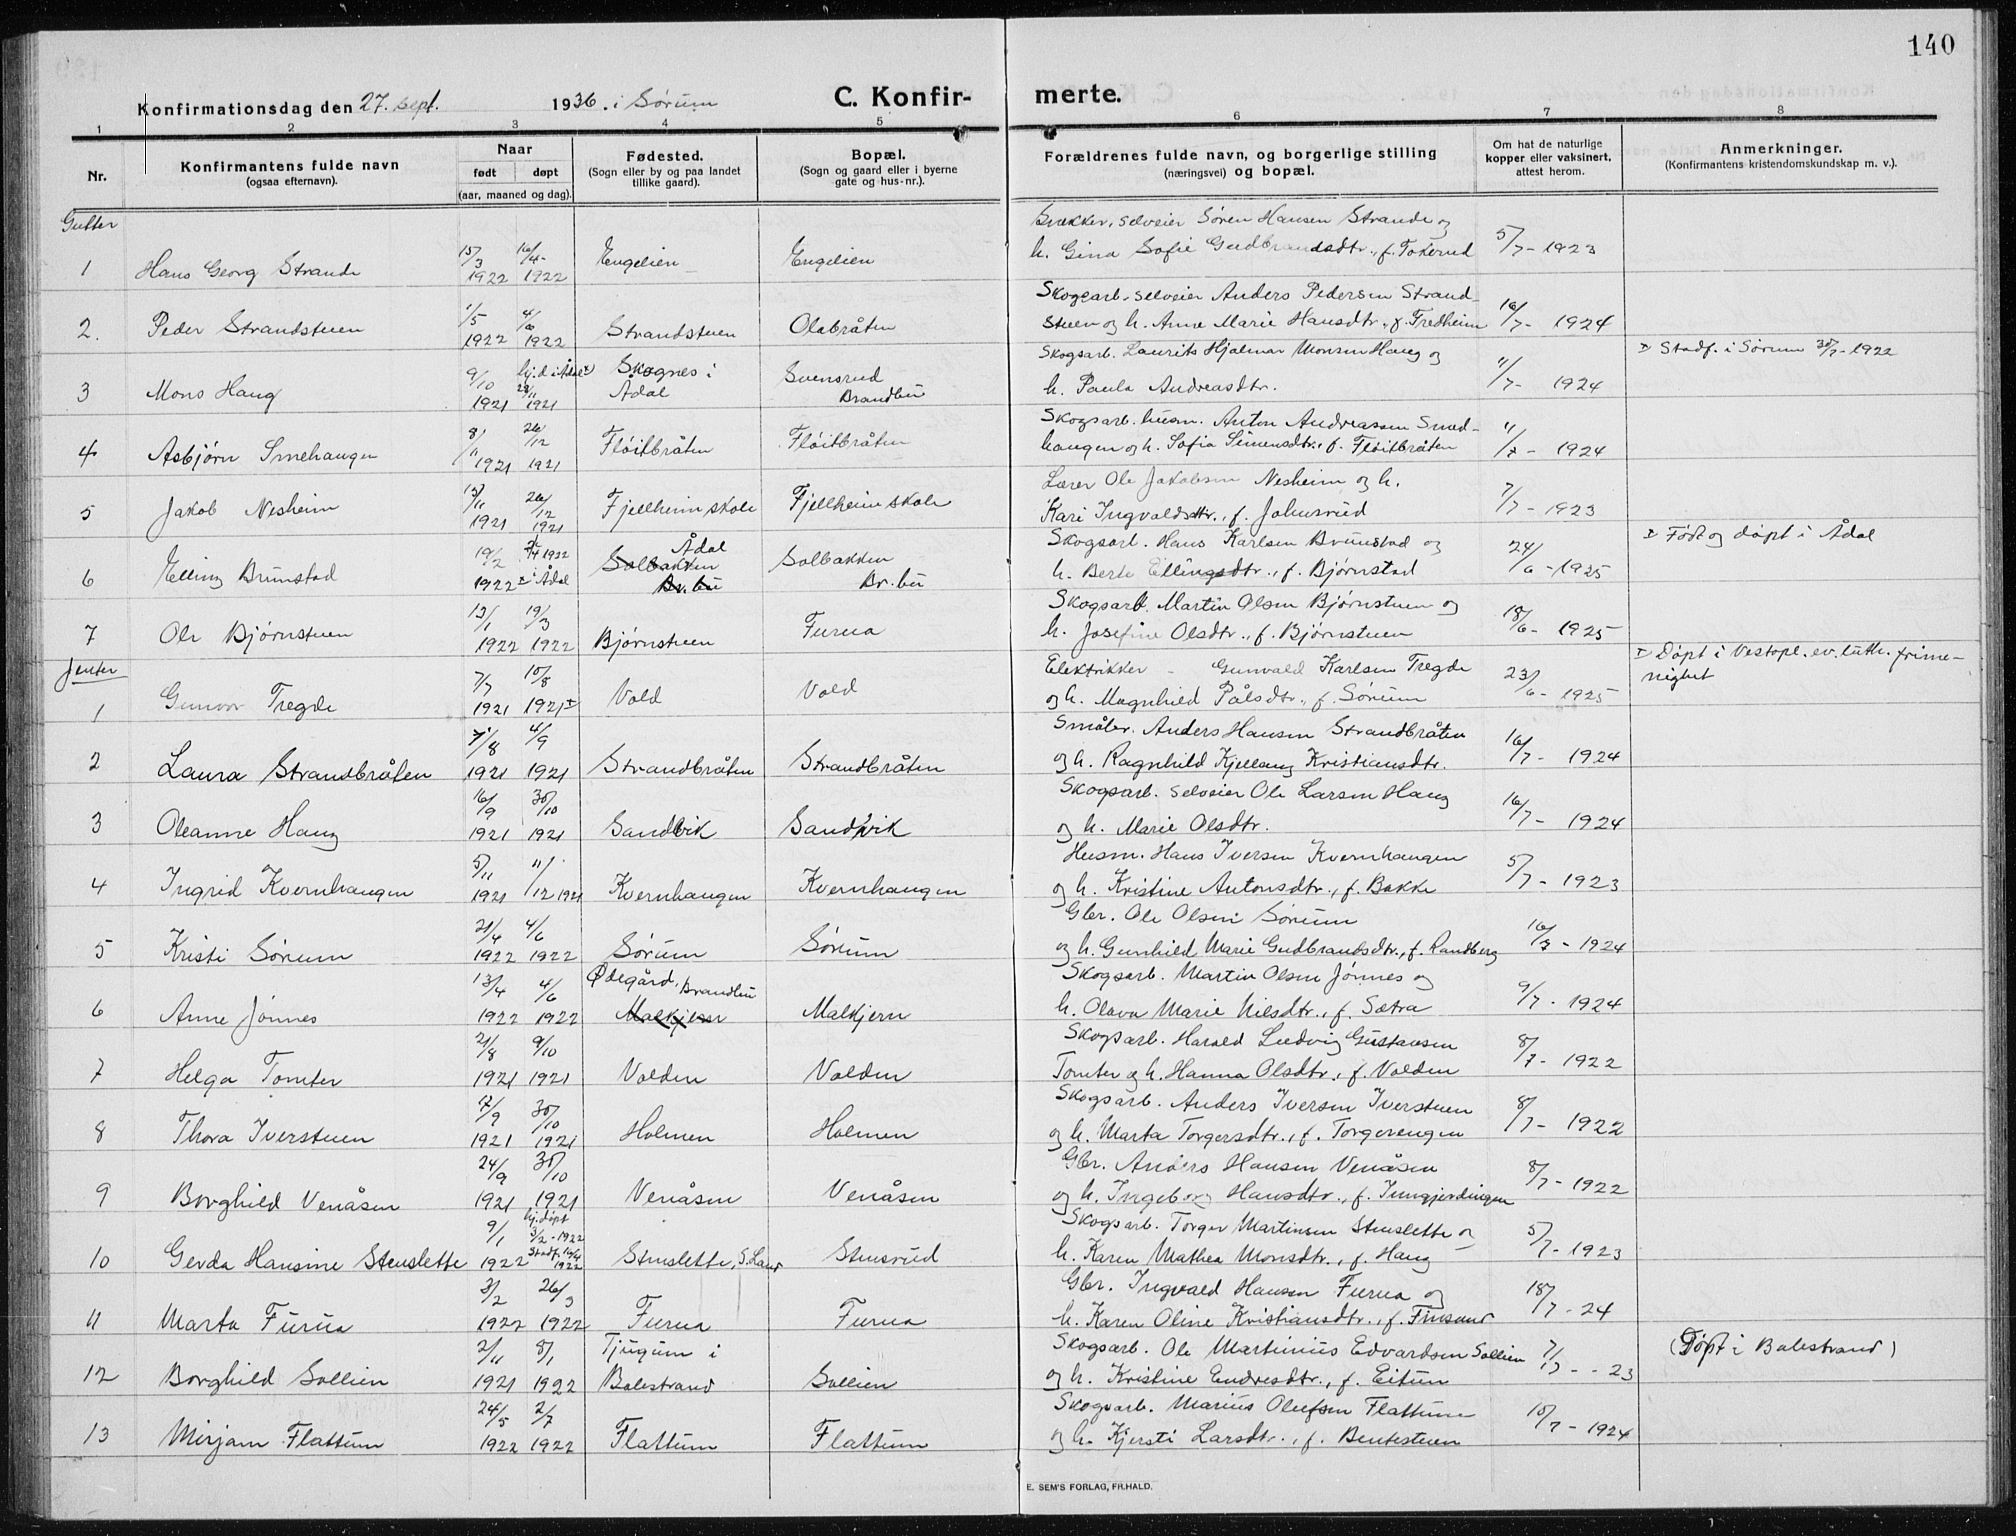 140
Konfirmationsdag den 27. sept. 1936. i Sørum C. Konfirmerte.
1 2 3 4 5 6 7 8
Nr. Konfirmantens fulde navn (ogsaa efternavn). Naar født døpt (aar, maaned og dag). Fødested. (Sogn eller by og paa landet tillike gaard). Bopæl. (Sogn og gaard eller i byerne gate og hus-nr.). Forældrenes fulde navn, og borgerlige stilling (næringsvei) og bopæl. Om hat de naturlige kopper eller vaksinert, attest herom. Anmerkninger. (Konfirmantens kristendomskundskap m. v.).
Gutter
Brækker, selveier Søren Hansen Strande og
1 Hans Georg Strande 15/3 1922 16/4 1922 Engelien Engelien h. Gina Sofie Gudbrandsdtr., f. Tokerud 5/7 - 1923
Skogsarb. selveier Anders Pedersen Strand-
2. Peder Strandstuen 1/5 1922 4/6 1922 Strandstuen Olabråten stuen og h. Anne Marie Hansdtr., f. Fredheim 16/7 - 1924
Skogsarb. Laurits Hjalmar Monsen Haug og
3 Mons Haug 9/10 1921 hj.d. i Ådal 23/11 1921 Skognes i Ådal Svensrud Brandbu h. Paula Andreasdtr. 11/7 - 1924 Stadf. i Sørum 30/7-1922
Skogsarb. husm. Anton Andreassen Smed-
4 Asbjørn Smehaugen 8/11 1921 26/12 1921 Fløitbråten Fløitbråten haugen og h. Sofia Simensdtr., f. Fløitbråten 11/7 - 1924
Lærer Ole Jakobsen Nesheim og h.
5 Jakob Nesheim 15/11 1921 26/12 1921 Fjellheim skole Fjellheim skole Kari Ingvaldsdtr., f. Johnsrud 7/7 - 1923
Skogsarb. Hans Karlsen Brunstad og
6 Elling Brunstad 19/2 1922 1922 i Ådal Ådal Solbakken Br.bu Solbakken Br.bu h. Berte Ellingsdtr., f. Bjørnstad 24/6 - 1925 Født og døpt i Ådal
Skogsarb. Martin Olsen Bjørnstuen og
7 Ole Bjørnstuen 13/1 1922 19/3 1922 Bjørnstuen Furua h. Josefine Olsdtr., f. Bjørnstuen 18/6 - 1925
Jenter
Elektrikker - Gunvald Karlsen Tregde
1 Gunvor Tregde 7/7 1921 10/8 1921 Vold Vold og h. Magnhild Pålsdtr., f. Sørum 23/6 - 1925 Døpt i Vestopl. ev. luth. frime-
nighet
Småbr. Anders Hansen Strandbråten
2 Laura Strandbråten 7/8 1921 4/9 1921 Strandbråten Strandbråten og h. Ragnhild Kjellaug Kristiansdtr. 16/7 - 1924
Skogsarb. selveier Ole Larsen Haug
3 Oleanne Haug 16/9 1921 30/10 1921 Sandvik Sandvik og h. Marie Olsdtr. 16/7 - 1924
Husm. Hans Iversen Kvernhaugen
4 Ingrid Kvernhaugen 5/11 1921 11/12 1921 Kvernhaugen Kvernhaugen og h. Kristine Antonsdtr., f. Bakke 5/7 - 1923
Gbr. Ole Olsen Sørum
5 Kristi Sørum 21/4 1922 4/6 1922 Sørum Sørum og h. Gunhild Marie Gudbrandsdtr., f. Randberg 16/7 - 1924
Skogsarb. Martin Olsen Jønnes og
6 Anne Jønnes 13/4 1922 4/6 1922 Ødegård, Brandbu Malkjern Malkjern h. Olava Marie Nilsdtr., f. Sætra 9/7 - 1924
Skogsarb. Harald Ludvig Gustavsen
7 Helga Tomter 21/8 1921 9/10 1921 Volden Volden Tomter og h. Hanna Olsdtr., f. Volden 8/7 - 1922
Skogsarb. Anders Iversen Iverstuen
8 Thora Iverstuen 7/9 1921 30/10 1921 Holmen Holmen og h. Marta Torgersdtr., f. Torgerengen 8/7 - 1922
Gbr. Anders Hansen Venåsen
9 Borghild Venåsen 24/9 1921 30/10 1921 Venåsen Venåsen og h. Ingeborg Hansdtr., f. Jungjordingen 8/7 - 1922
Skogsarb. Torger Martinsen Stenslette og
10 Gerda Hansine Stenslette 9/1 1922 hj.døpt 3/2-1922 Stadf. 16/4 1922 Stenslette, S. Land Stensrud h. Karen Mathea Monsdtr., f. Haug 5/7 - 1923
Gbr. Ingvald Hansen Furua og
11 Marta Furua 3/2 1922 26/3 1922 Furua Furua h. Karen Oline Kristiansdtr., f. Finsand 18/7 - 24
Skogsarb. Ole Martinius Edvardsen Sollien
12 Borghild Sollien 2/11 1921 8/1 1922 Tjugum i Balestrand Sollien og h. Kristine Endresdtr., f. Eitun 7/12 - 23 (Døpt i Balestrand)
Skogsarb. Marius Olufsen Flattum
13 Mirjam Flattum 24/5 1922 2/7 1922 Flattum Flattum og h. Kjersti Larsdtr., f. Bentestuen 15/7 - 1924
E. SEM'S FORLAG, FR.HALD.